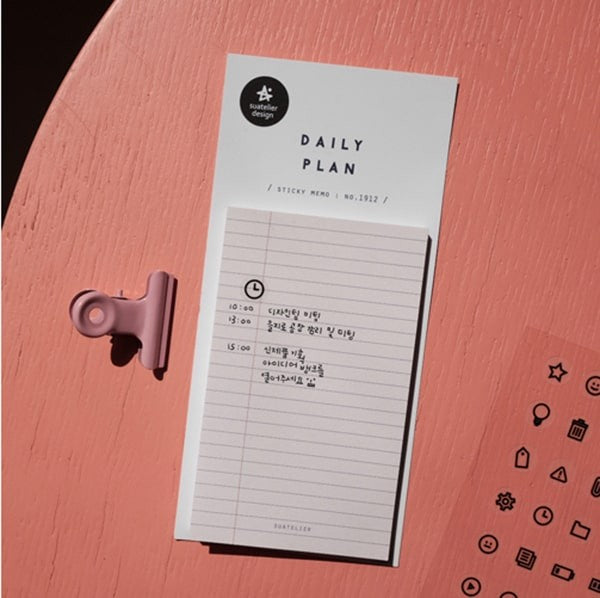 suatelier
design
DAILY
PLAN
/ STICKY MEMO : NO.1912 /
10:00 디자인팀 미팅
13:00 을지로 공장 감리 및 미팅
15:00 신제품 기획
아이디어 뱅크를
열어주세요
SUATELIER